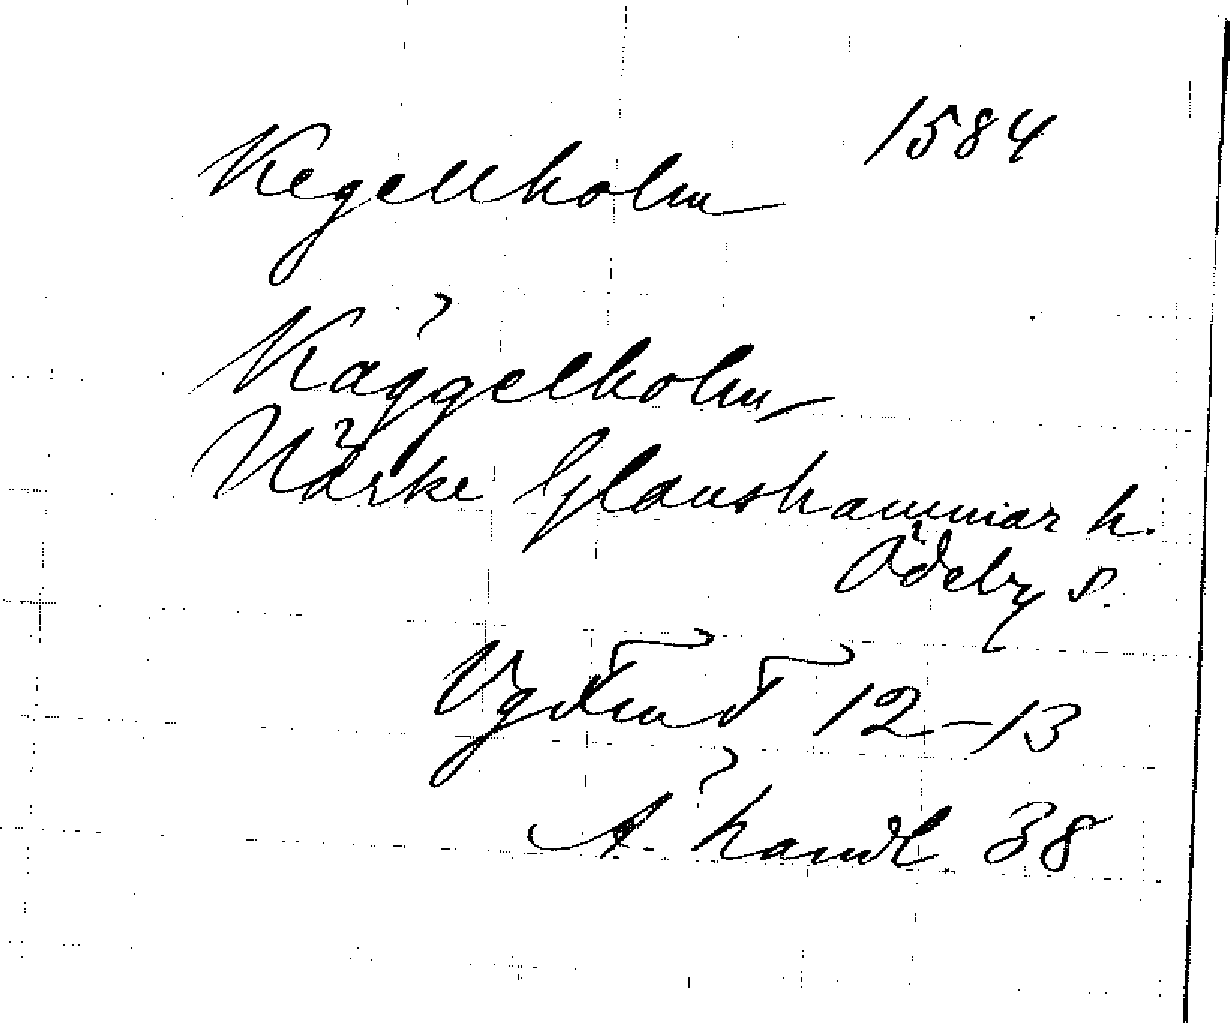 Kegellholm 1584
Käggelholm
Närke Glanshammar h.
Ödeby s.
12-13
handl 38